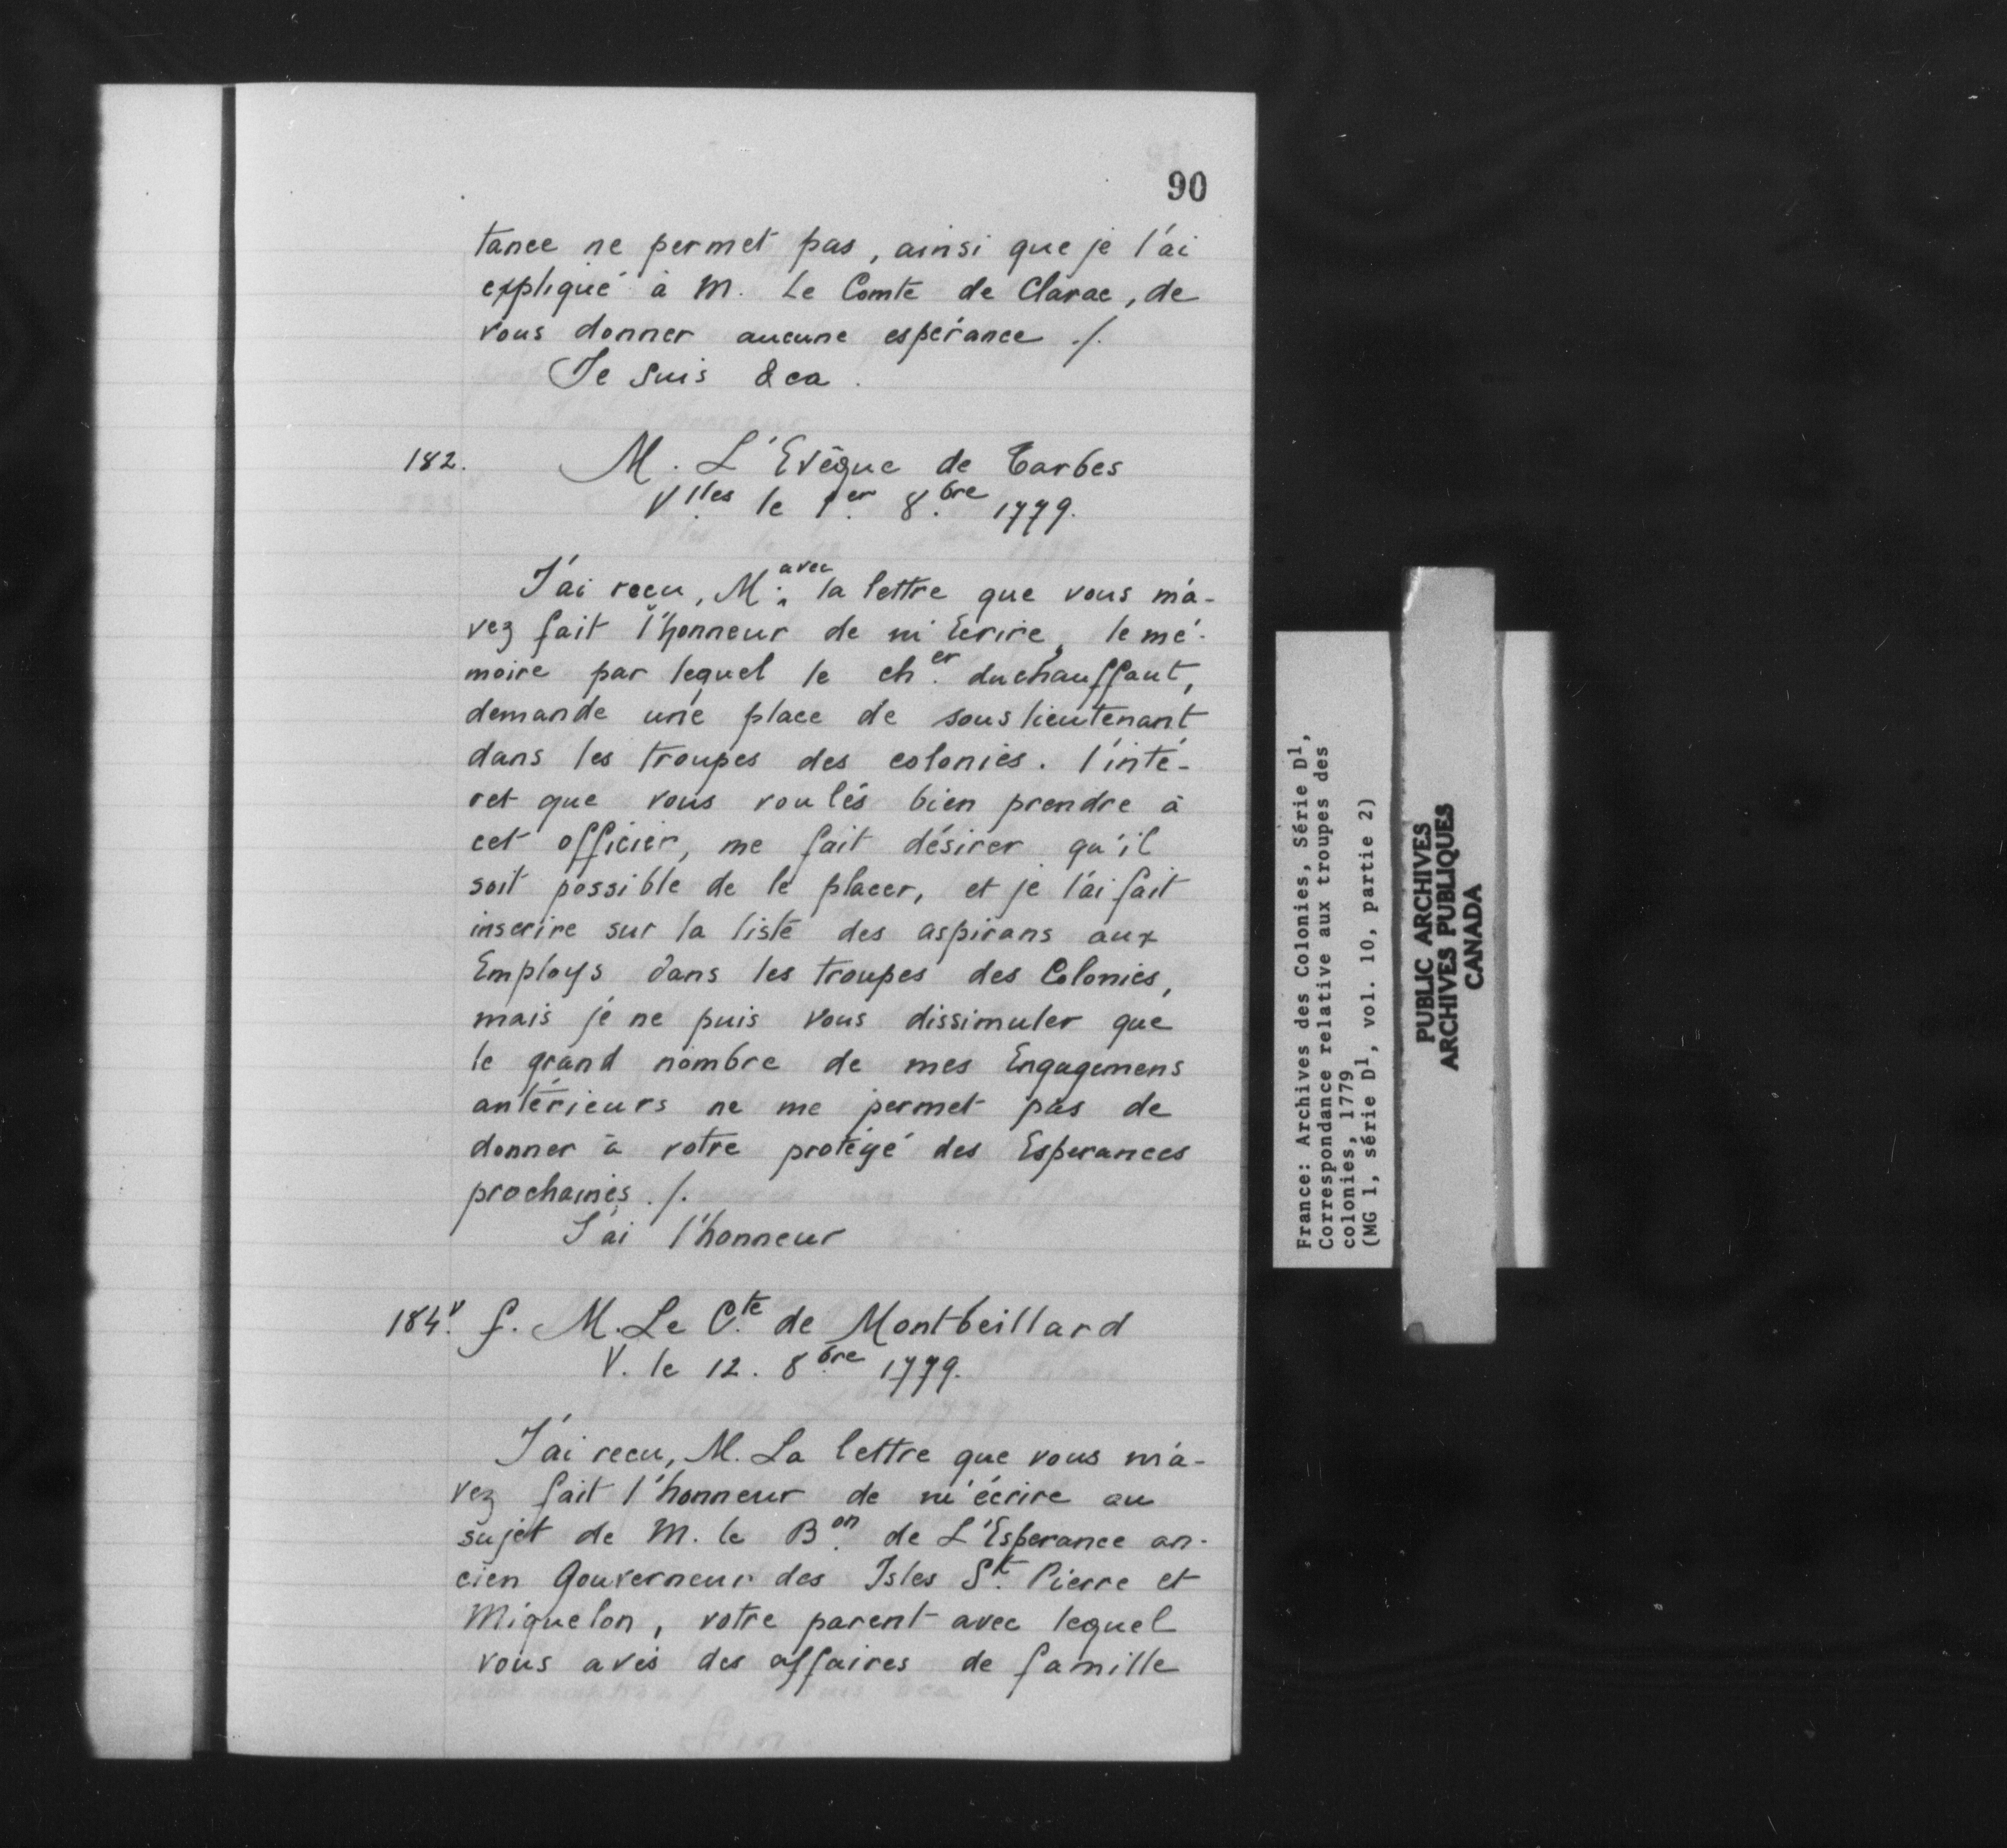 90
tance ne permet pas, ainsi que je l'ai
expliqué à M. Le Comte de Clarac, de
vous donner aucune espérance ./.
Je suis &ca.
182. M. L'Evêque de Tarbes
Vlles le 1er 8.bre 1779.
J'ai reçu, M. avec la lettre que vous m'a-
vez fait l'honneur de m'Ecrire, le mé-
moire par lequel le cher. duchauffaut,
demande une place de souslieutenant
dans les troupes des colonies. l'inté-
ret que vous voulés bien prendre à
cet officier, me fait désirer qu'il
soit possible de le placer, et je l'ai fait
inscrire sur la liste des aspirans aux
Employs dans les troupes des Colonies,
mais je ne puis vous dissimuler que
le grand nombre de mes Engagemens
antérieurs ne me permet pas de
donner à votre protégé des Esperances
prochaines ./.
J'ai l'honneur
184v. f. M. Le Cte. de Montbeillard
V. le 12. 8bre 1779.
J'ai recu, M. La lettre que vous m'a-
vez fait l'honneur de m'écrire au
sujet de M. le Bon. de L'Esperance an-
cien Gouverneur des Isles St. Pierre et
Miquelon, votre parent avec lequel
vous avés des affaires de famille
France: Archives des Colonies, Série D1,
Correspondance relative aux troupes des
colonies, 1779
(MG 1, série D1, vol. 10, partie 2)
PUBLIC ARCHIVES
ARCHIVES PUBLIQUES
CANADA